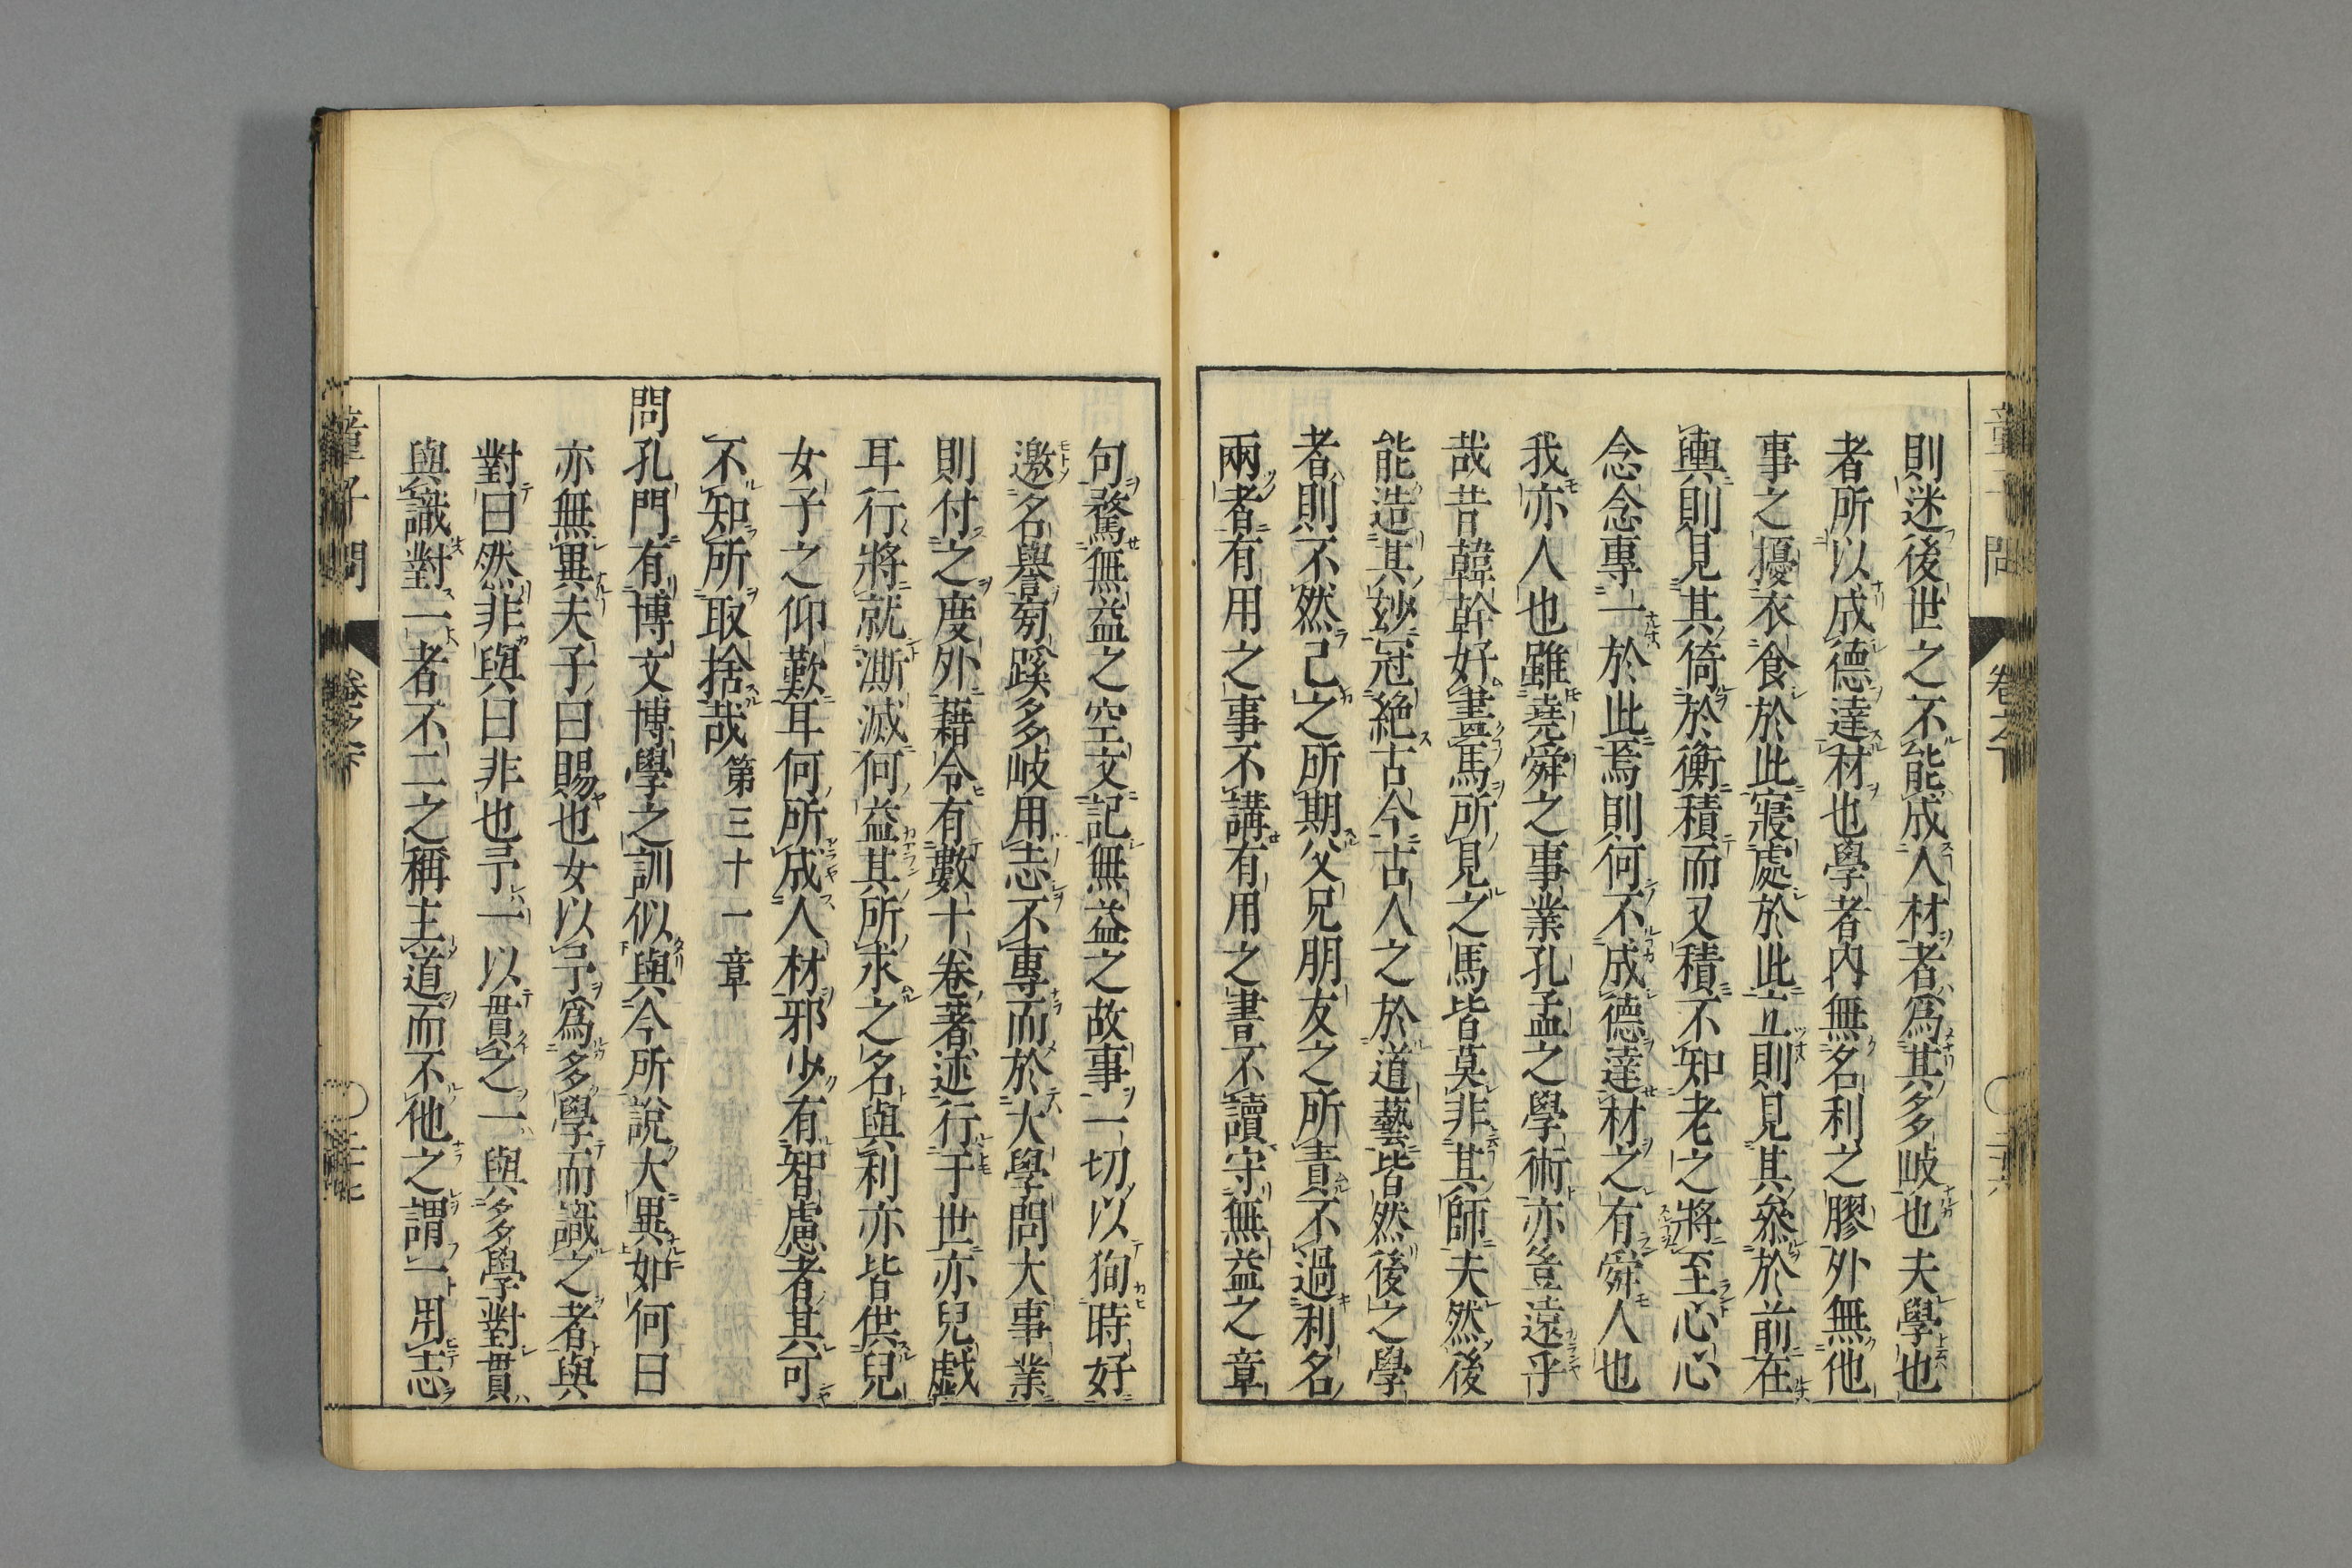 則迷後世之不能成人材者爲其多岐也夫學也
者所以成德達材也學者內無名利之膠外無他
事之擾衣食於此寢處於此立則見其參於前在
輿則見其倚於衡積而又積不知老之將至心心
念念專一於此焉則何不成德達材之有舜人也
我亦人也雖堯舜之事業孔孟之學術亦豈遠乎
哉昔韓幹好畫馬所見之馬皆莫非其師夫然後
能造其妙冠絕古今古人之於道藝皆然後之學
者則不然己之所期父兄朋友之所責不過利名
兩者有用之事不講有用之書不讀守無益之章
句騖無益之空文記無益之故事一切以徇時好
邀名譽旁蹊多岐用志不專而於大學問大事業
則付之度外藉令有數十卷著述行于世亦兒戯
耳行將就澌滅何益其所求之名與利亦皆供兒
女子之仰歎耳何所成人材邪少有智慮者其可
不知所取捨哉 第三十一章
問孔門有博文博學之訓似與今所說大異如何曰
亦無異夫子曰賜也女以予爲多學而識之者與
對曰然非與曰非也予一以貫之一與多學對貫
與識對一者不二之稱主道而不他之謂一用志
童子問 卷之下 二十七